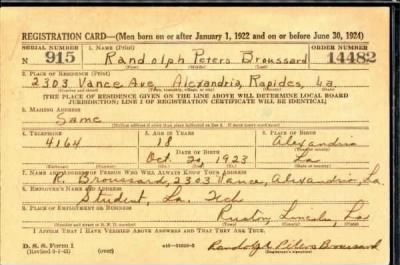 REGISTRATION CARD—(Men born on or after January 1, 1922 and on or before June 30, 1924)
SERIAL NUMBER 1. NAME (Print) ORDER NUMBER
N 915 Randolph Peters Broussard 14482
2. PLACE OF RESIDENCE (Print)
2303 Vance Ave Alexandria, Rapides, La
[THE PLACE OF RESIDENCE GIVEN ON THE LINE ABOVE WILL DETERMINE LOCAL BOARD
JURISDICTION; LINE 2 OF REGISTRATION CERTIFICATE WILL BE IDENTICAL]
3. MAILING ADDRESS
Same
4. TELEPHONE 5. AGE IN YEARS 6. PLACE OF BIRTH
4164 18 Alexandria
Oct. 2, 1923 La
7. NAME AND ADDRESS OF PERSON WHO WILL ALWAYS KNOW YOUR ADDRESS
R. Broussard, 2303 Vance, Alexandria, La
8. EMPLOYER'S NAME AND ADDRESS
Student, La. Tech
9. PLACE OF EMPLOYMENT OR BUSINESS
Ruston, Lincoln, La
I AFFIRM THAT I HAVE VERIFIED ABOVE ANSWERS AND THAT THEY ARE TRUE.
D. S. S. Form 1
(over) Randolph Peters Broussard